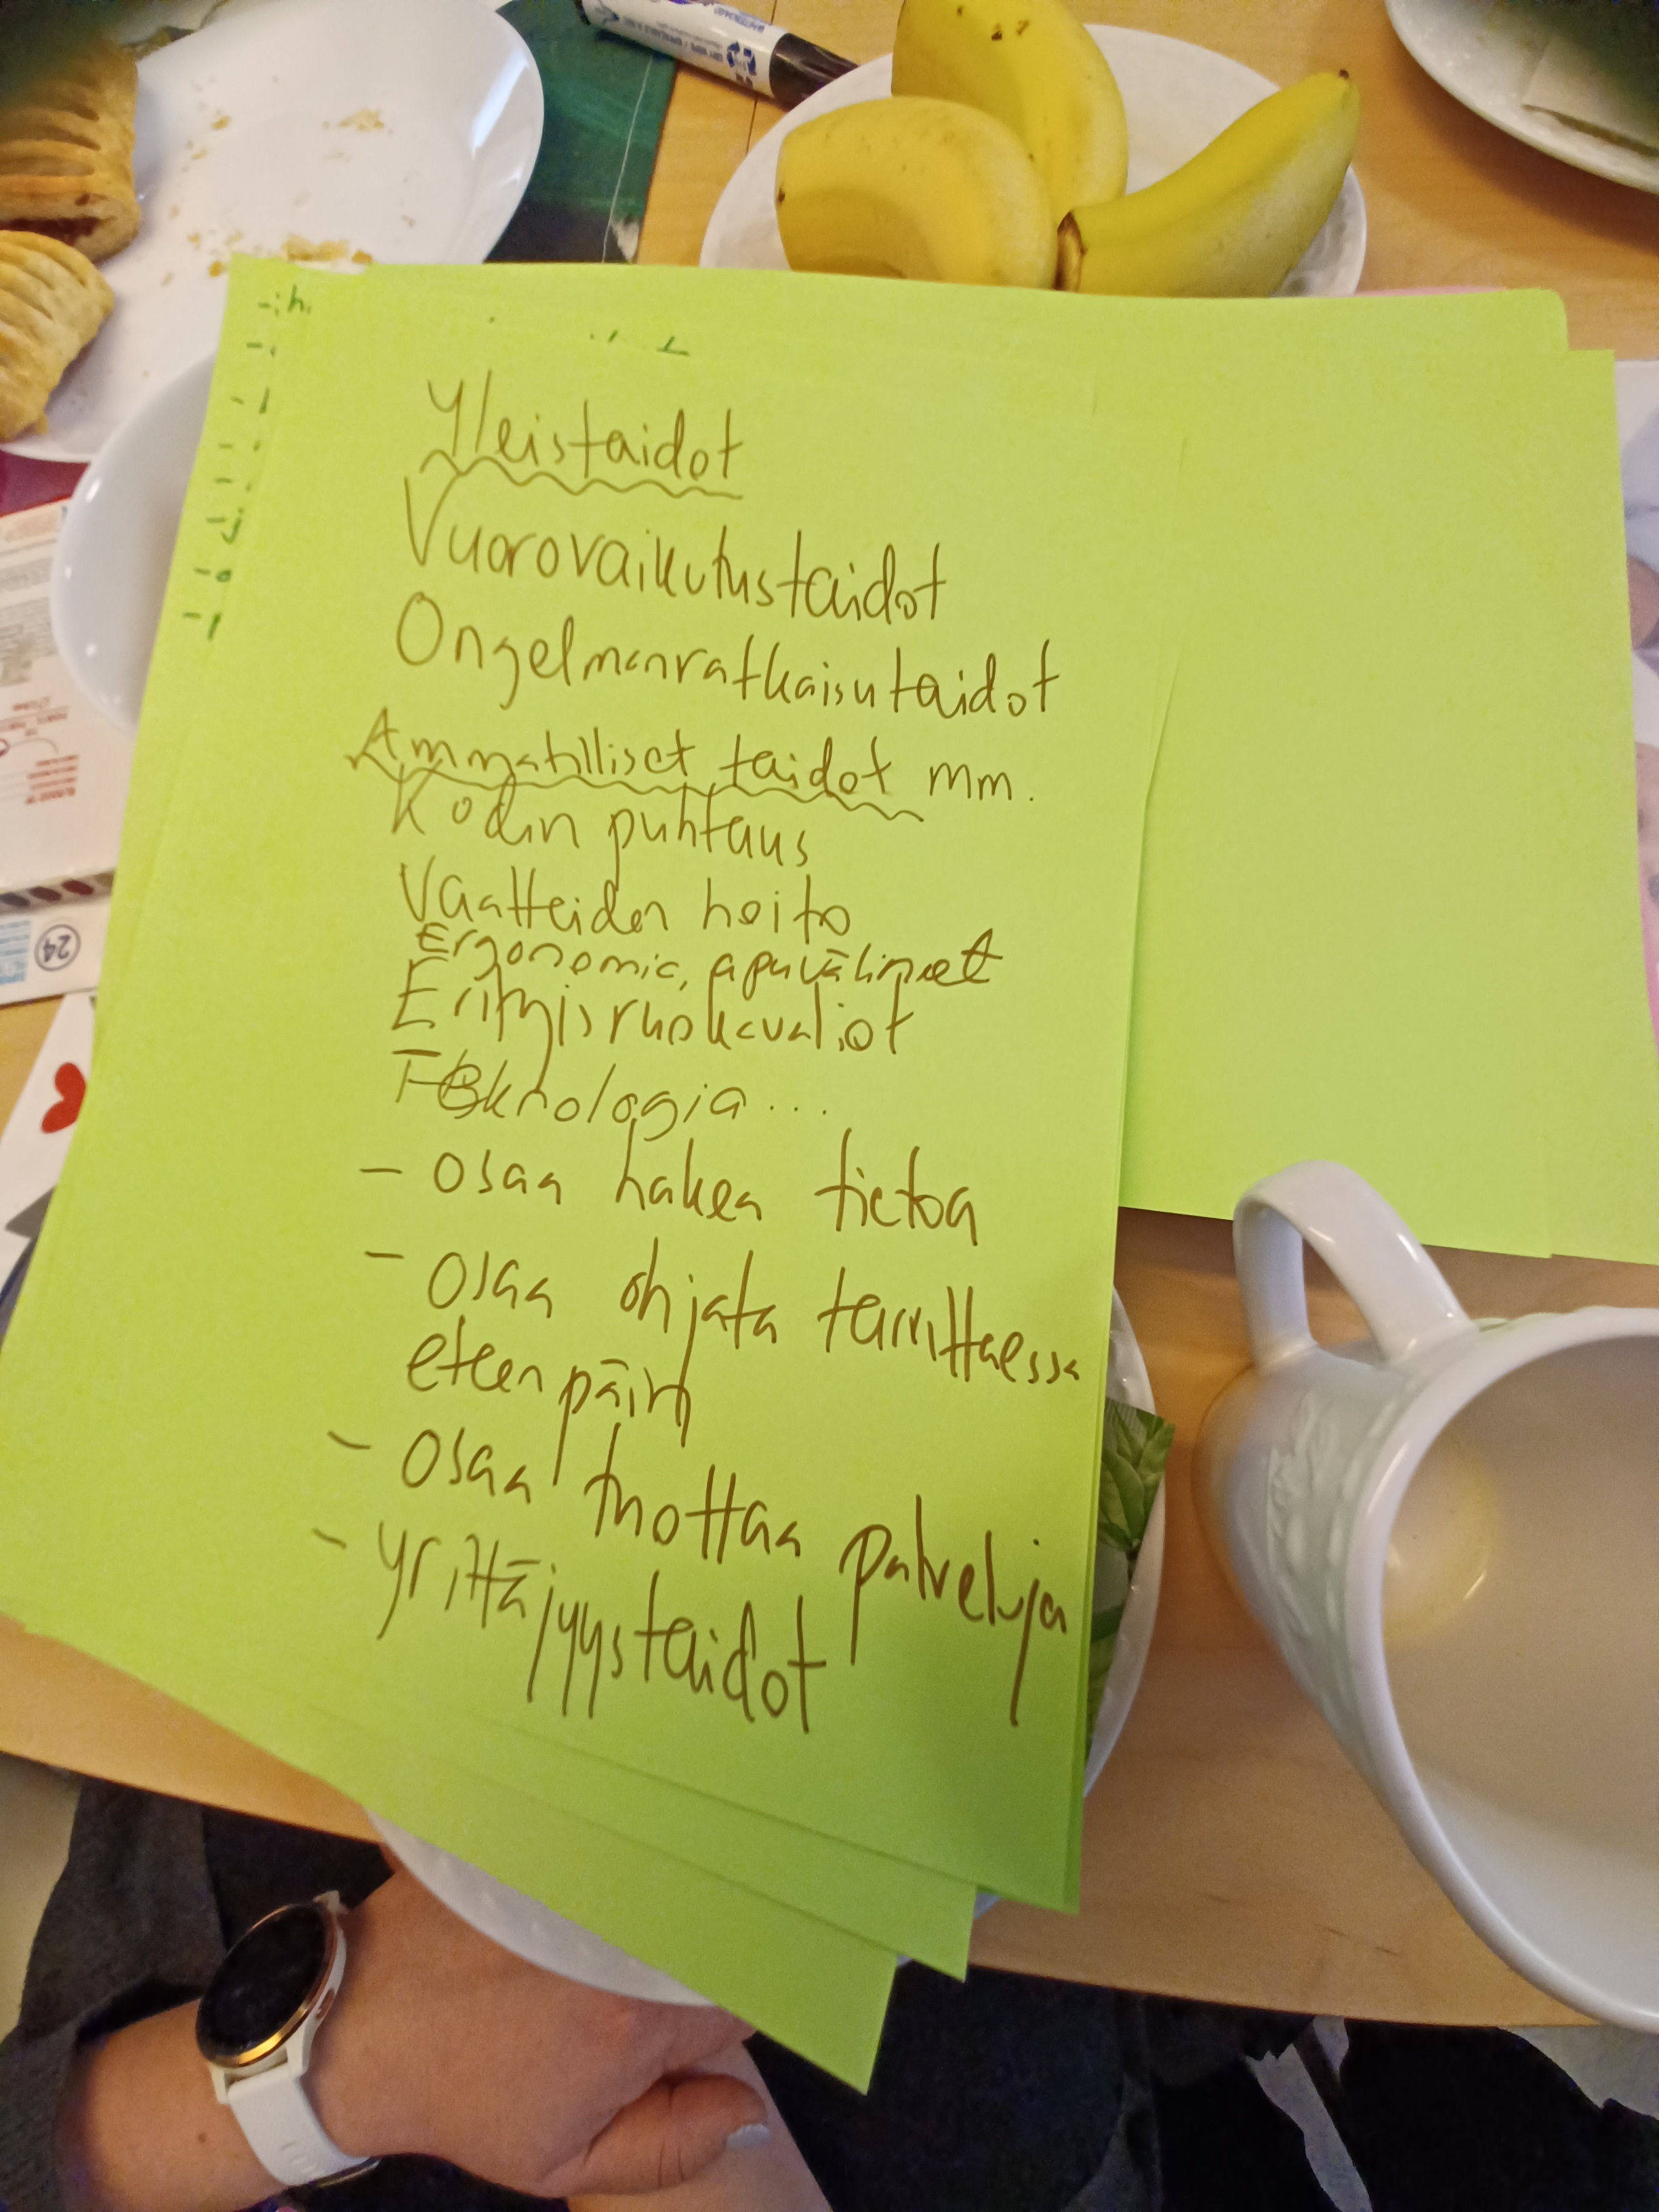 Yleistaidot
Vuorovaikutustaidot
Ongelmanratkaisutaidot
Ammatilliset taidot mm.
Kodin puhtaus
Vaatteiden hoito
Ergonomic, apuvälineet
Erityisruokavaliot
Teknologia...
- osaa hakea tietoa
- osaa ohjata tarvittaessa
eteenpäin
- osaa tuottaa palveluja
- yrittäjyystaidot
24